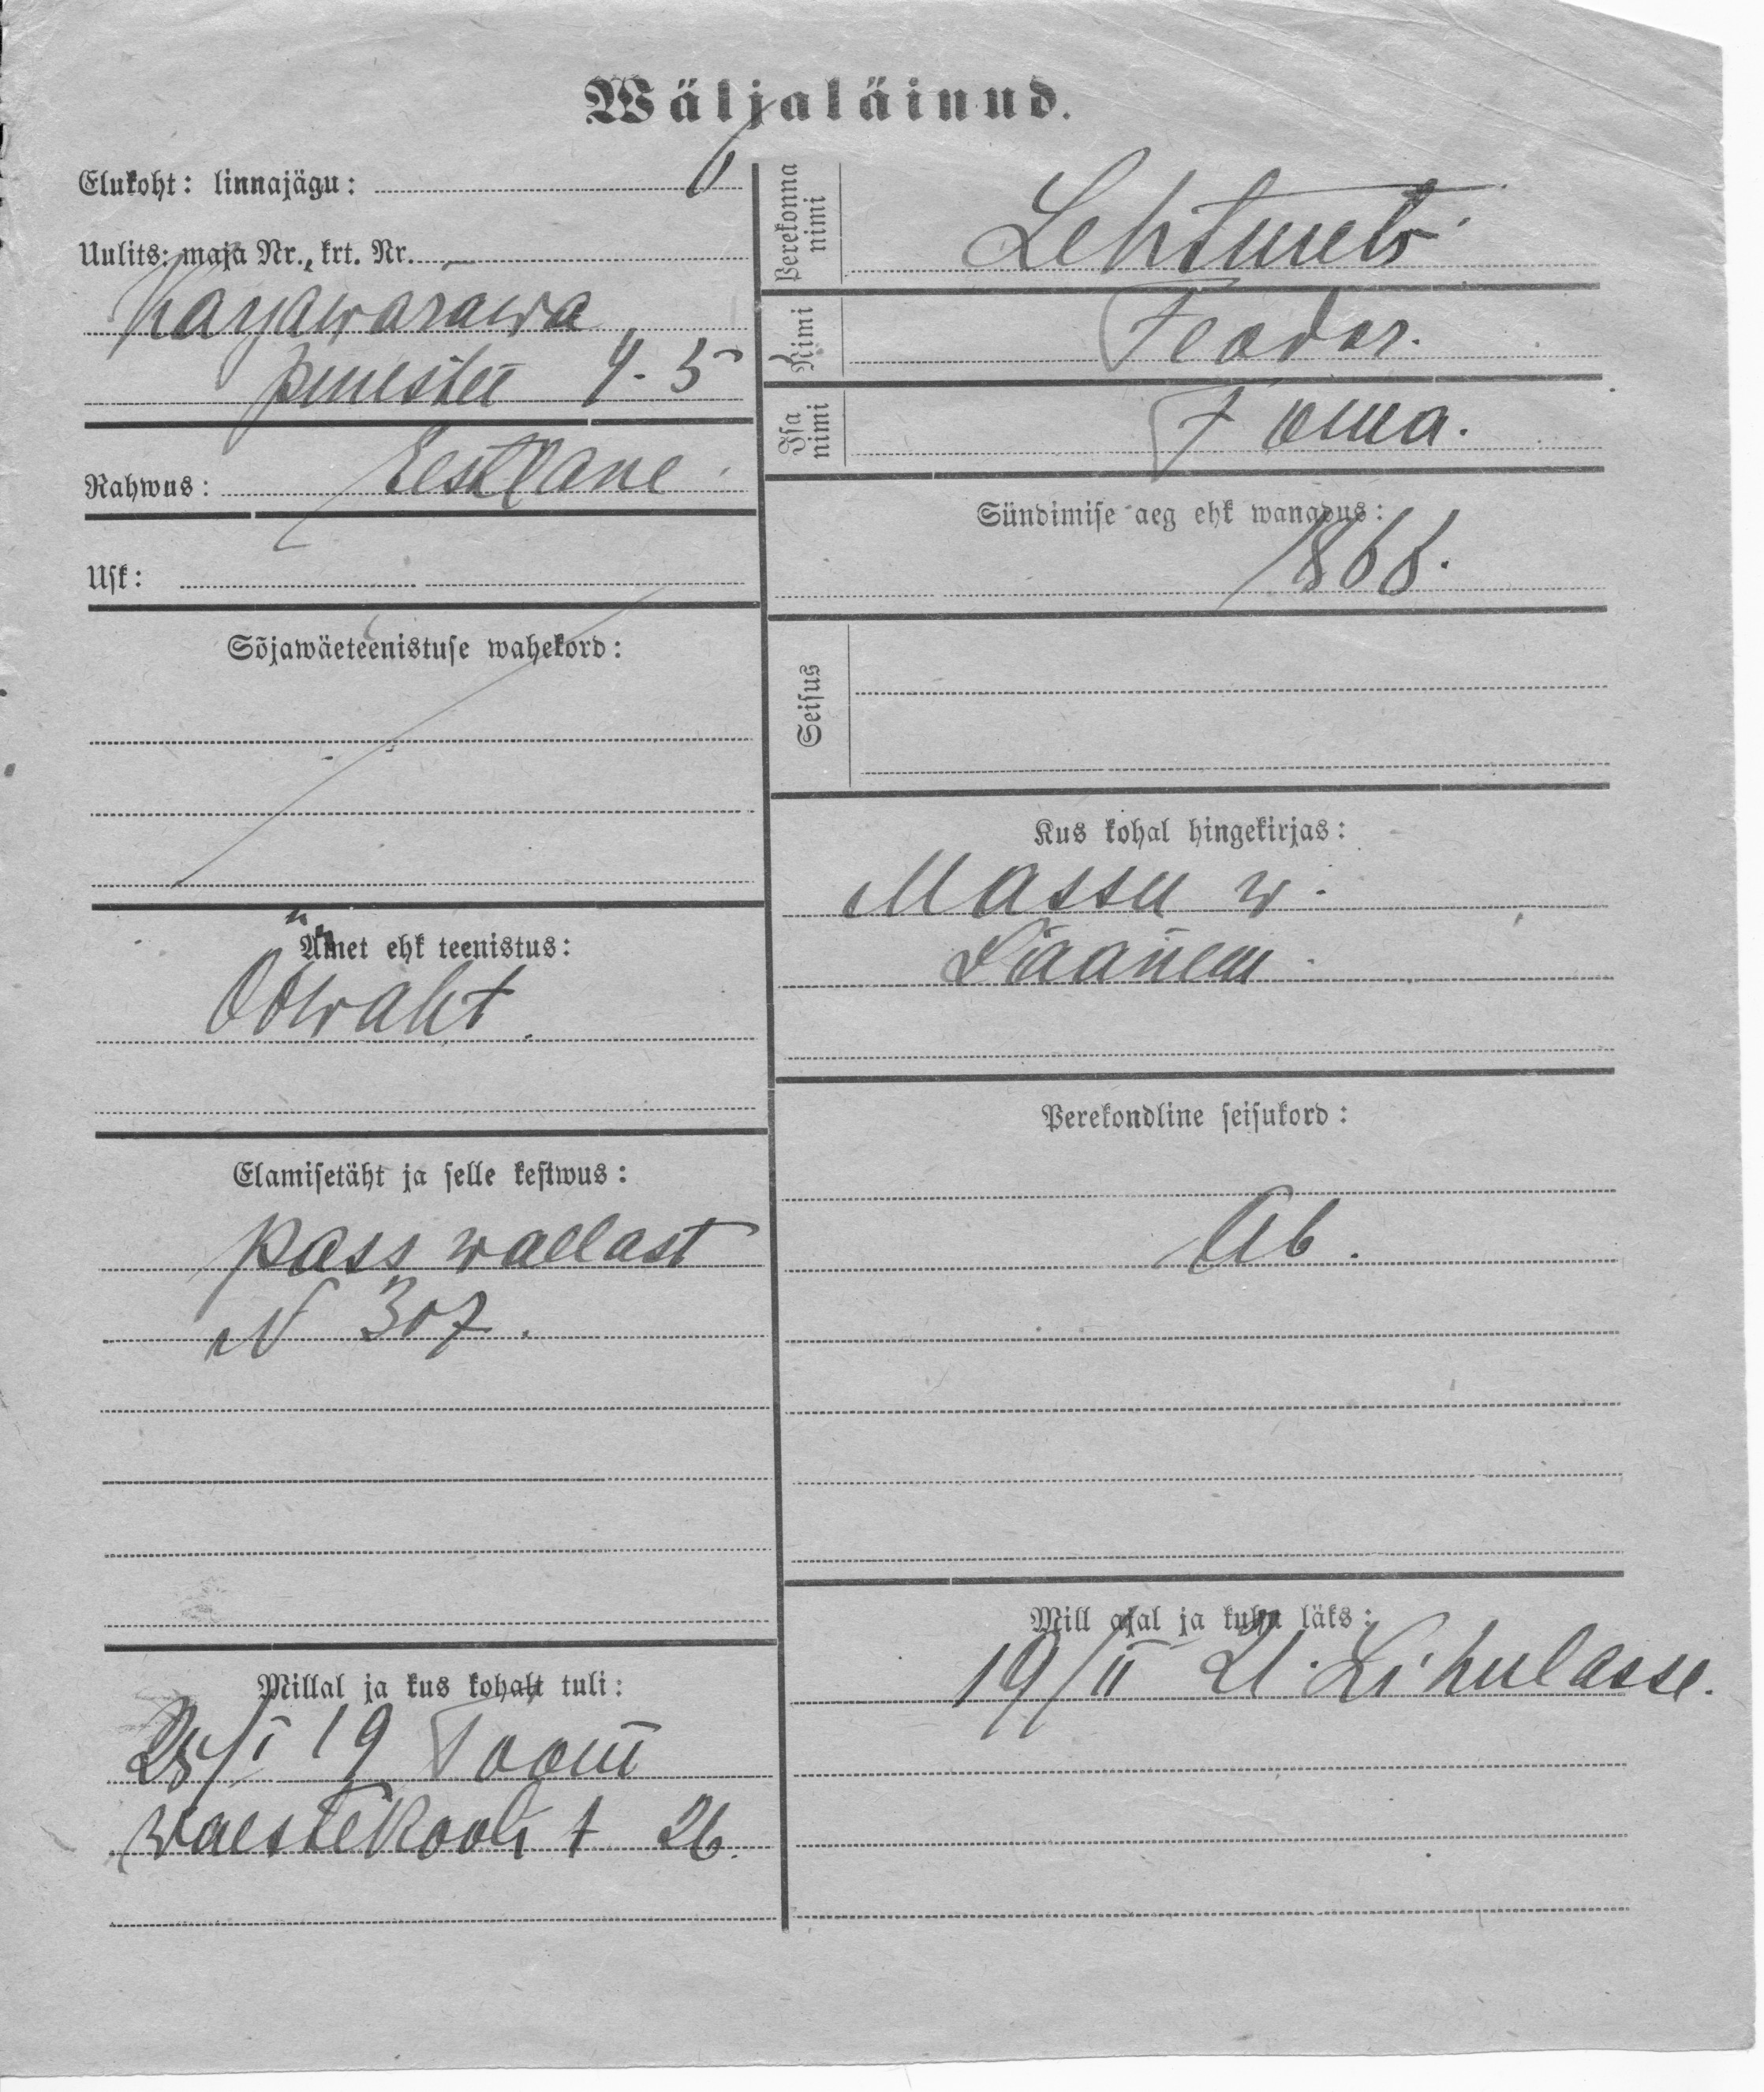 Wäljaläinud.
Elukoht: linnajägu:
Uulits: maja Nr., krt. Nr.
Karjawärawa
puiestee 4-5
Rahwus: Eestlane
Usk:
Sõjawäeteenistuse wahekord:
Amet ehk teenistus:
Öövaht
Elamisetäht ja selle kestwus:
Pass wallast
N 307.
Millal ja kus kohalt tuli:
25/I 19 Toom
waestekooli t 26.
Perekonna nimi
Nimi Feodor.
Isa nimi Foma.
Sündimise aeg ehk wanadus:
1866.
Seisus
Kus kohal hingekirjas:
Massu w.
Läänem
Perekondline seisukord:
Ab.
Mill ajal ja kuhu läks:
19/II 21. Lihulasse.